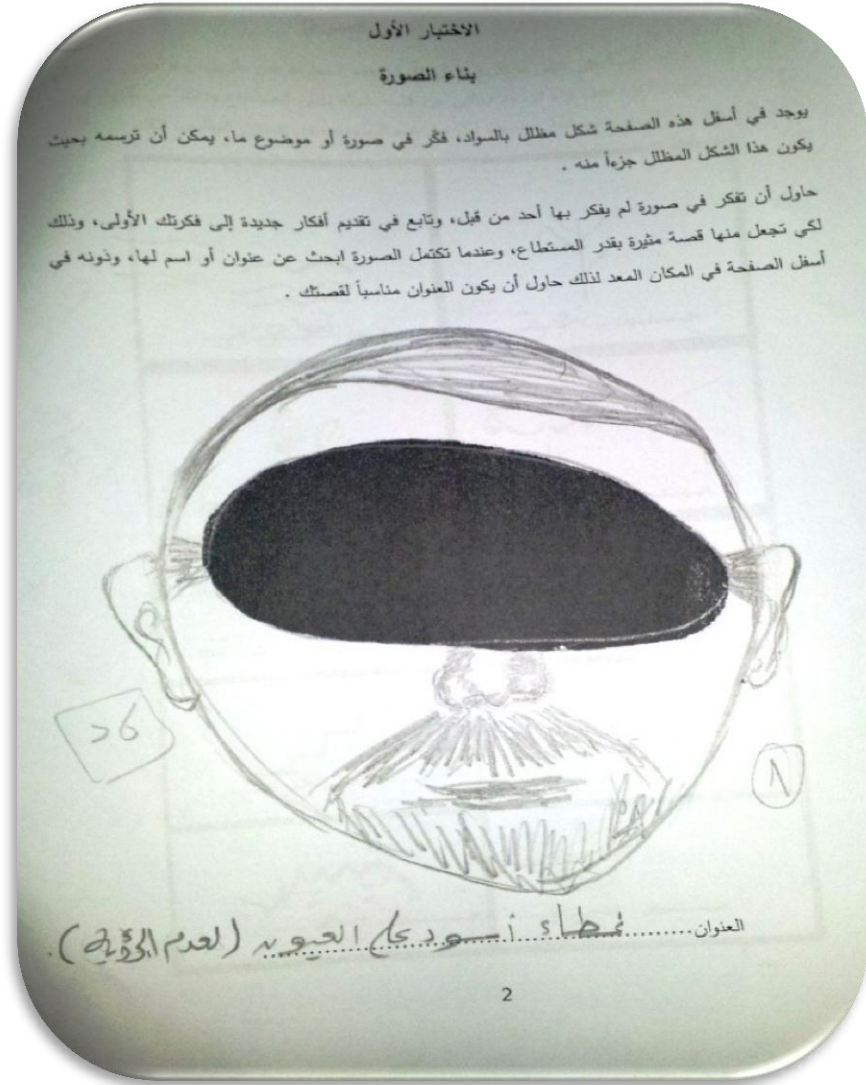 الاختبار الأول
بناء الصورة
يوجد في أسفل هذه الصفحة شكل مظلل بالسواد، فكّر في صورة أو موضوع ما، يمكن أن ترسمه بحيث
يكون هذا الشكل المظلل جزءاً منه .
حاول أن تفكر في صورة لم يفكر بها أحد من قبل، وتابع في تقديم أفكار جديدة إلى فكرتك الأولى، وذلك
لكي تجعل منها قصة مثيرة بقدر المستطاع، وعندما تكتمل الصورة ابحث عن عنوان أو اسم لها، ودونه في
أسفل الصفحة في المكان المعد لذلك حاول أن يكون العنوان مناسباً لقصتك .
٨
العنوان........غطاء أسود على العيون (لعدم الرؤية).
2